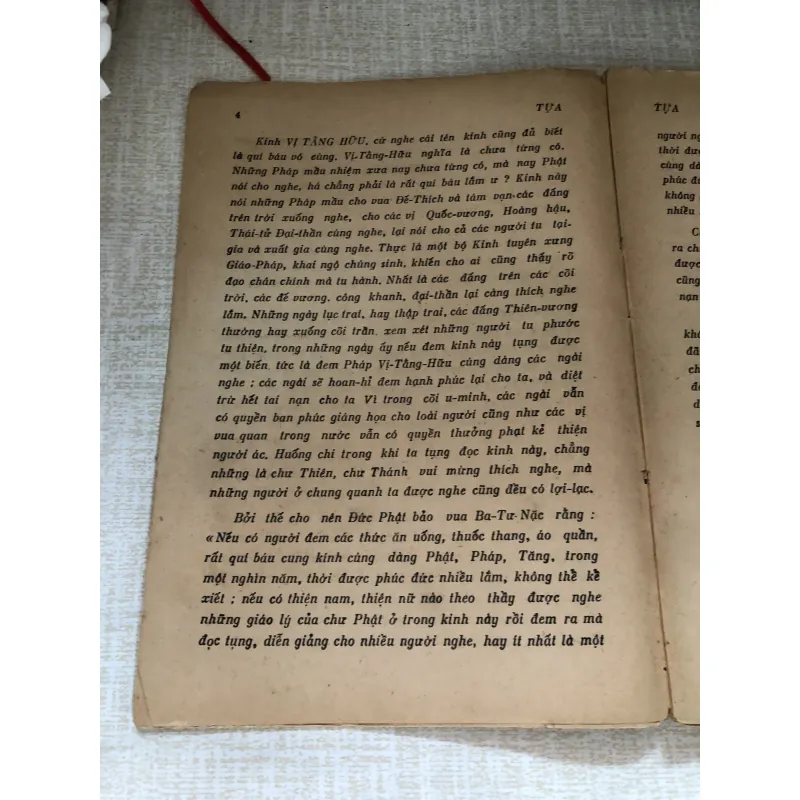 4 TỰA
Kinh VỊ TẰNG HỮU, cứ nghe cái tên kinh cũng đủ biết
là quí báu vô cùng. Vị-Tằng-Hữu nghĩa là chưa từng có.
Những Pháp mầu nhiệm xưa nay chưa từng có, mà nay Phật
nói cho nghe, há chẳng phải là rất quí báu lắm ư ? Kinh này
nói những Pháp mầu cho vua Đế-Thích và tám vạn các đấng
trên trời xuống nghe, cho các vị Quốc-vương, Hoàng hậu,
Thái-tử Đại-thần cùng nghe, lại nói cho cả các người tu tại-
gia và xuất gia cùng nghe. Thực là một bộ Kinh tuyên xưng
Giáo-Pháp, khai ngộ chúng sinh, khiến cho ai cũng thấy rõ
đạo chân chính mà tu hành. Nhất là các đấng trên các cõi
trời, các đế vương, công khanh, đại-thần lại càng thích nghe
lắm. Những ngày lục trai, hay thập trai, các đấng Thiên-vương
thường hay xuống cõi trần, xem xét những người tu phước
tu thiện, trong những ngày ấy nếu đem kinh này tụng được
một biến, tức là đem Pháp Vị-Tằng-Hữu cúng dàng các ngài
nghe ; các ngài sẽ hoan-hỉ đem hạnh phúc lại cho ta, và diệt
trừ hết tai nạn cho ta Vì trong cõi u-minh, các ngài vẫn
có quyền ban phúc giáng họa cho loài người cũng như các vị
vua quan trong nước vẫn có quyền thưởng phạt kẻ thiện
người ác. Huống chi trong khi ta tụng đọc kinh này, chẳng
những là chư Thiên, chư Thánh vui mừng thích nghe, mà
những người ở chung quanh ta được nghe cũng đều có lợi-lạc.
Bởi thế cho nên Đức Phật bảo vua Ba-Tư-Nặc rằng :
«Nếu có người đem các thức ăn uống, thuốc thang, áo quần,
rất quí báu cung kính cúng dàng Phật, Pháp, Tăng, trong
một nghìn năm, thời được phúc đức nhiều lắm, không thể kể
xiết ; nếu có thiện nam, thiện nữ nào theo thầy được nghe
những giáo lý của chư Phật ở trong kinh này rồi đem ra mà
đọc tụng, diễn giảng cho nhiều người nghe, hay ít nhất là một
TỰA
người
thời được
cúng dàng
phúc
không
nhiều
ra
được
cũng
nạn
đã